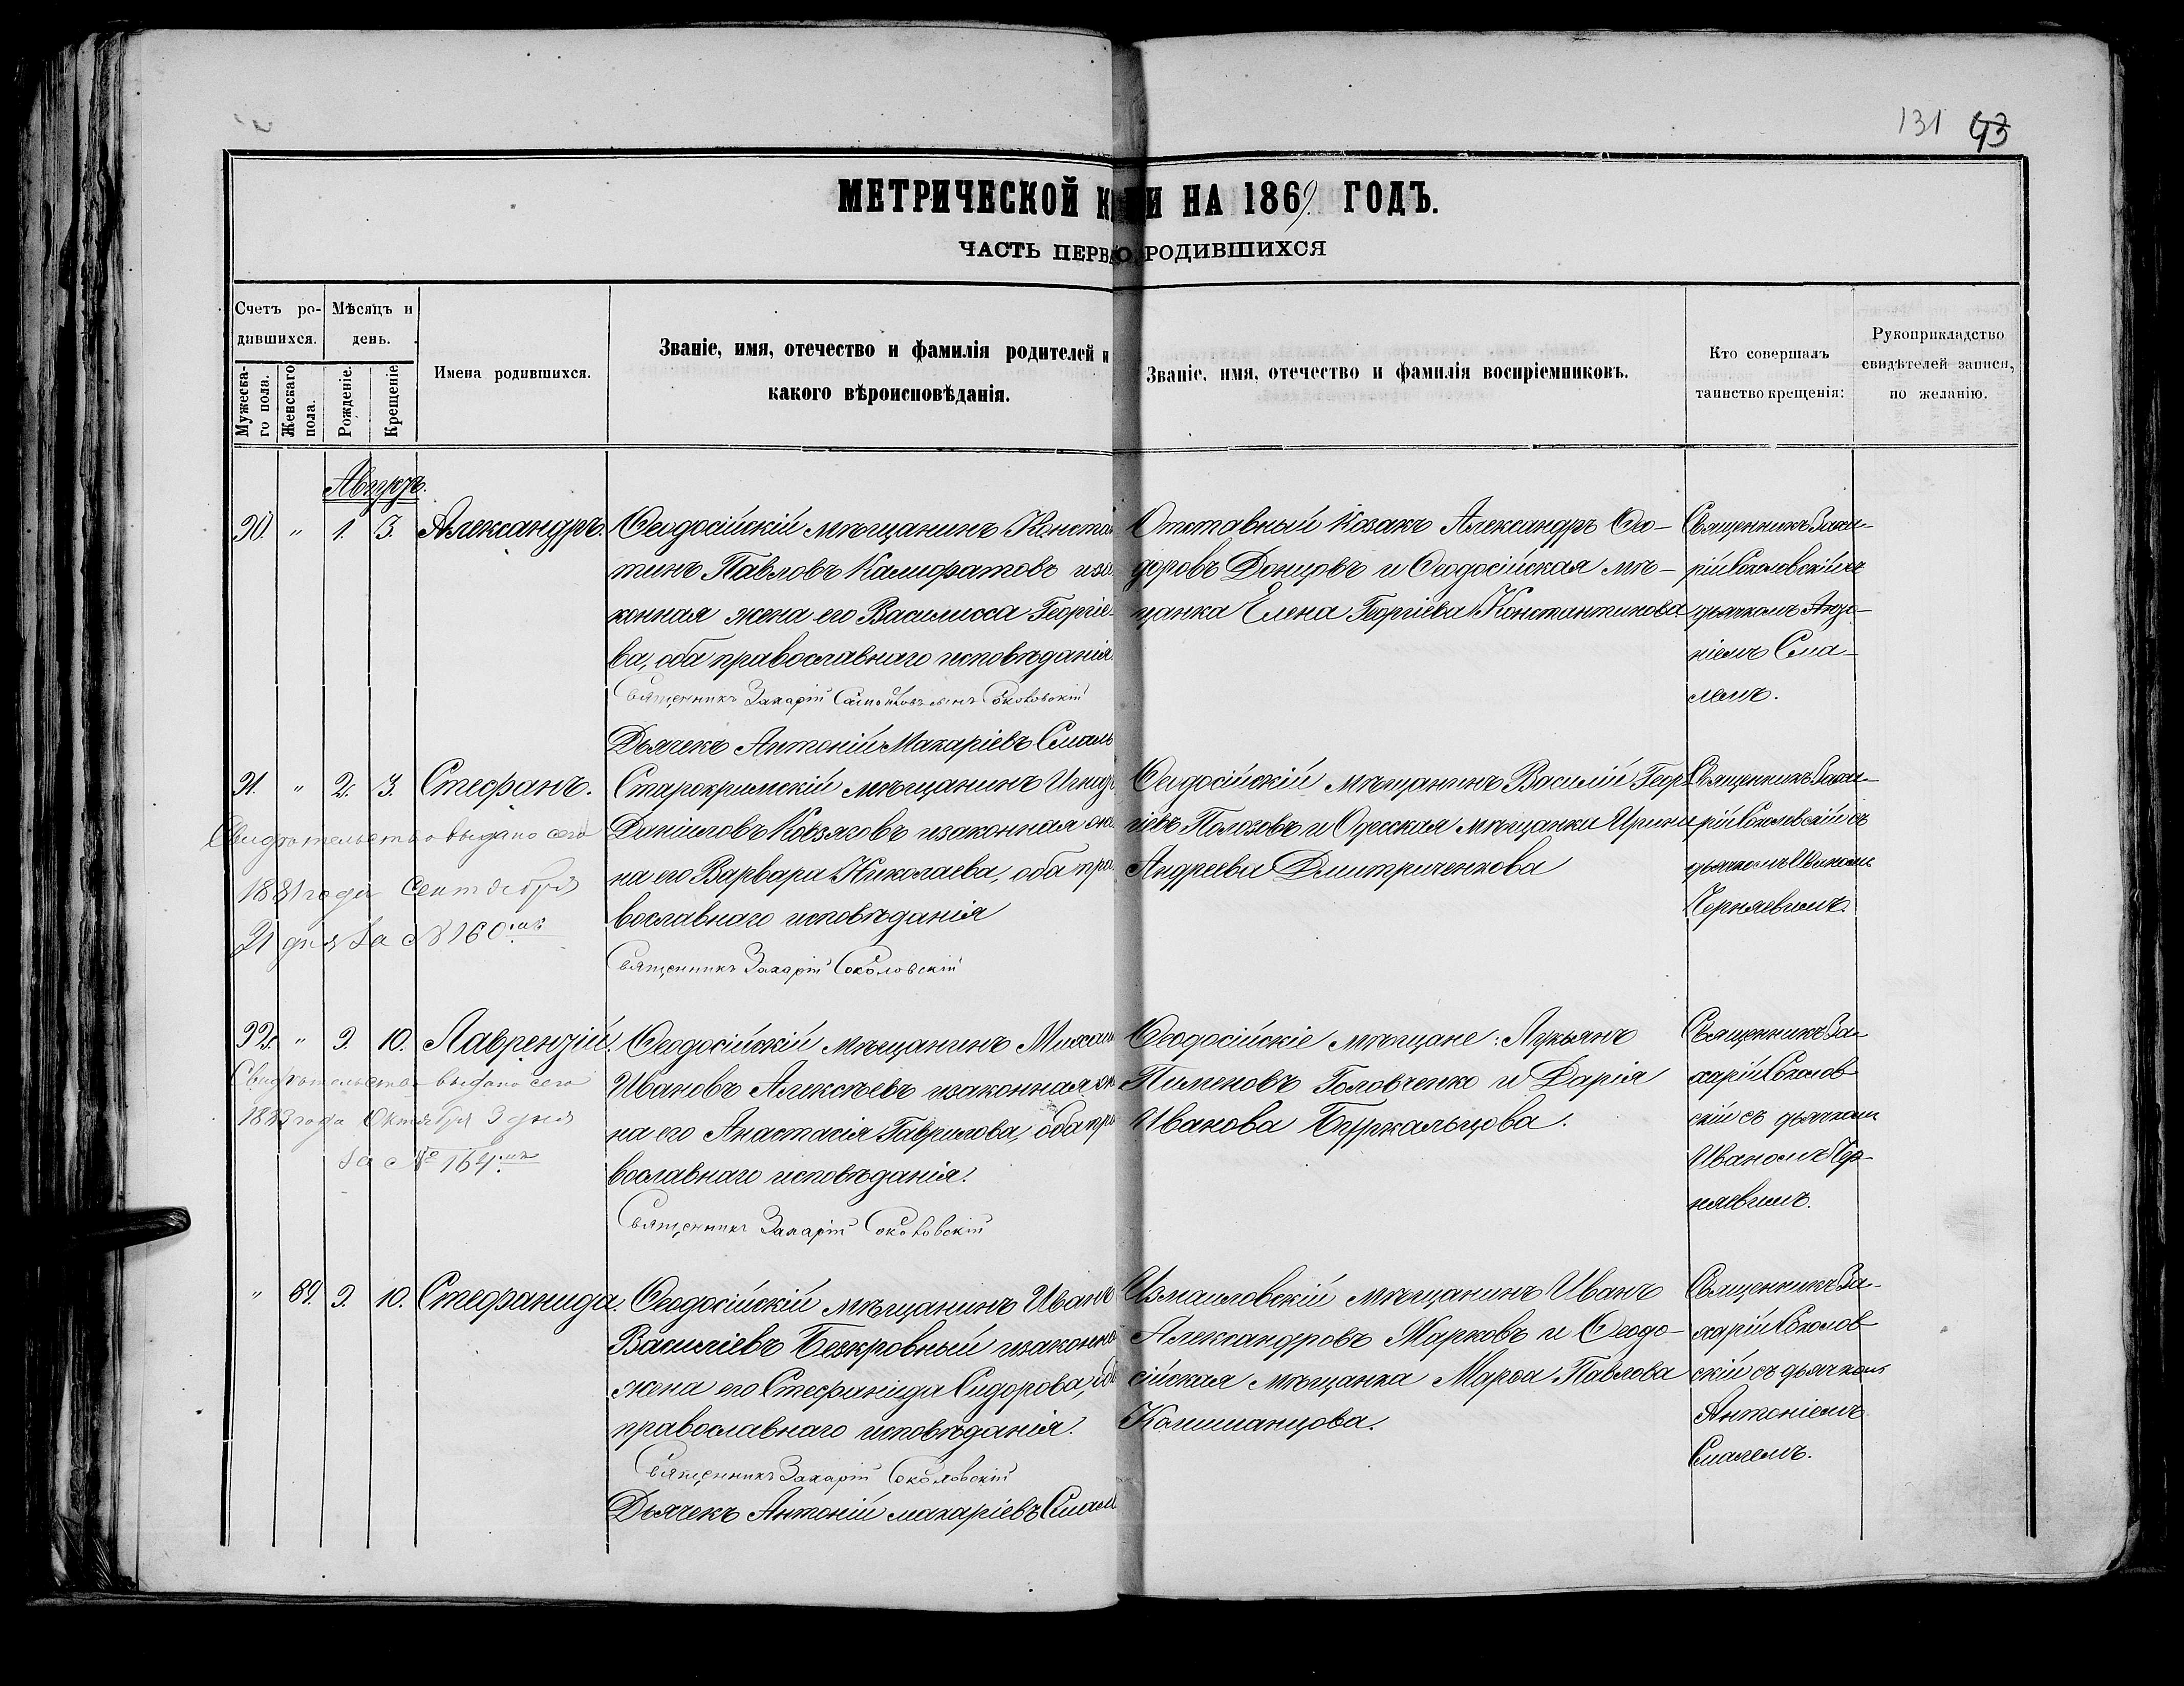 131 43
МЕТРИЧЕСКОЙ К И НА 1869 ГОДЪ.
ЧАСТЬ ПЕРВ О РОДИВШИХСЯ
Счетъ ро-
дившихся.
Мужеска-
го пола.
Женскаго
пола.
Мѣсяцъ и
день.
Рожденіе.
Крещеніе
Имена родившихся.
Званіе, имя, отечество и фамилія родителей и
какого вѣроисповѣданія.
Званіе, имя, отечество и фамилія воспріемниковъ.
Кто совершалъ
таинство крещенія:
Рукоприкладство
свидѣтелей записи,
по желанію.
Августъ.
90. " 1. 3. Александръ.
Ѳеодосійскій мѣщанинъ Констан
тинъ Павловъ Калифатовъ иза
конная жена его Василисса Георгіе-
ва, оба православнаго исповѣданія.
Священникъ Захарій Соколовскій
Дьячекъ Антоній Макаріевъ Смаль
Отставный Козакъ Александръ Ѳео-
доровъ Донцовъ и Ѳеодосійская мѣ-
щанка Елена Георгіева Константинова.
Священникъ Заха-
рій Соколовскій съ
дьячкомъ Анто-
ніемъ Сма-
лемъ.
91. " 2. 3. Стефанъ.
Свидѣтельство выдано сего
1881 года Сентября
21 дня за № 260мъ
Старокримскій мѣщанинъ Игнат
Даніиловъ Ковзяковъ изаконная же
на его Варвара Николаева, оба пра
вославнаго исповѣданія
Священникъ Захарій Соколовскій
Ѳеодосійскій мѣщанинъ Василій Геор
гіевъ Полозовъ и Одесская мѣщанка Ирина
Андреева Дмитриченкова
Священникъ Заха-
рій Соколовскій съ
дьячкомъ Иваномъ
Черняевимъ.
92. " 9. 10. Лаврентій.
Свидѣтельство выдано сего
1883 года Октября 3 дня
За № 164мъ
Ѳеодосійскій мѣщанинъ Михаилъ
Ивановъ Алексѣевъ изаконная же
на его Анастасія Гаврилова, оба пра
вославнаго исповѣданія.
Священникъ Захарій Соколовскій
Ѳеодосійскіе мѣщане: Лукьянъ
Пименовъ Головченко и Дарія
Иванова Буркальцова.
Священникъ За-
харій Соколов
скій съ дьячкомъ
Иваномъ Чер-
няевимъ.
" 89. 9. 10. Стефанида.
Ѳеодосійскій мѣщанинъ Иванъ
Василіевъ Безкровный изаконна
жена его Стефанида Сидорова, об
православнаго исповѣданія.
Священникъ Захарій Соколовскій
Дьячекъ Антоній макаріевъ Смаль
Измаиловскій мѣщанинъ Иванъ
Александровъ Марковъ и Ѳеодо-
сійская мѣщанка Марѳа Павлова
Капшанцова.
Священникъ За-
харій Соколов
скій съ дьячкомъ
Антоніемъ
Смалемъ.